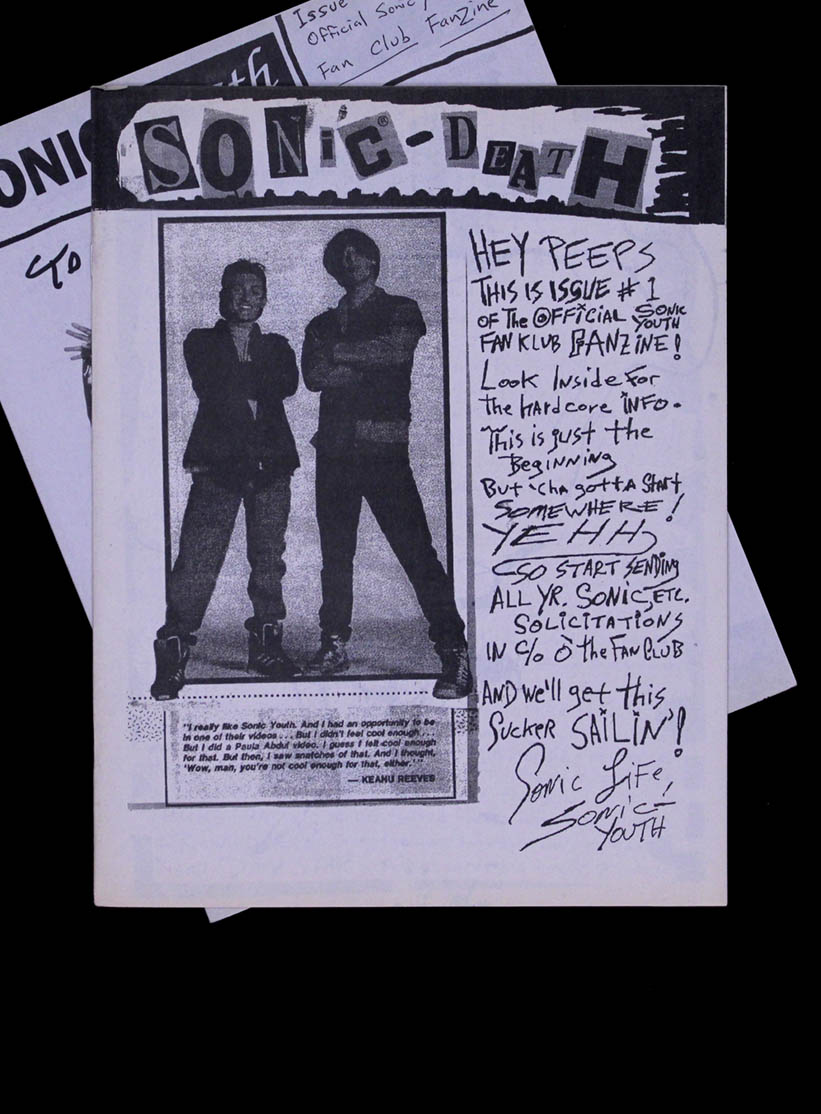 Issue
Official Sonic
Fan Club Fanzine
ONIC
th
To
SONiC®-DEATH
HEY PEEPS
THIS IS ISSUE # 1
OF THE OFFICIAL SONIC
YOUTH
FAN KLUB FANZINE!
Look Inside For
The hardcore INFO.
This is just the
Beginning
But 'cha gotta START
SOMEWHERE!
YEHH,
SO START SENDING
ALL YR. SONIC, ETC.
SOLICITATIONS
IN c/o O the FAN CLUB
AND we'll get this
Sucker SAILIN'!
Sonic Life,
Sonic-
YOUTH
"I really like Sonic Youth. And I had an opportunity to be
in one of their videos . . . But I didn't feel cool enough . . .
But I did a Paula Abdul video. I guess I felt cool enough
for that. But then, I saw snatches of that. And I thought,
'Wow, man, you're not cool enough for that, either.' "
— KEANU REEVES